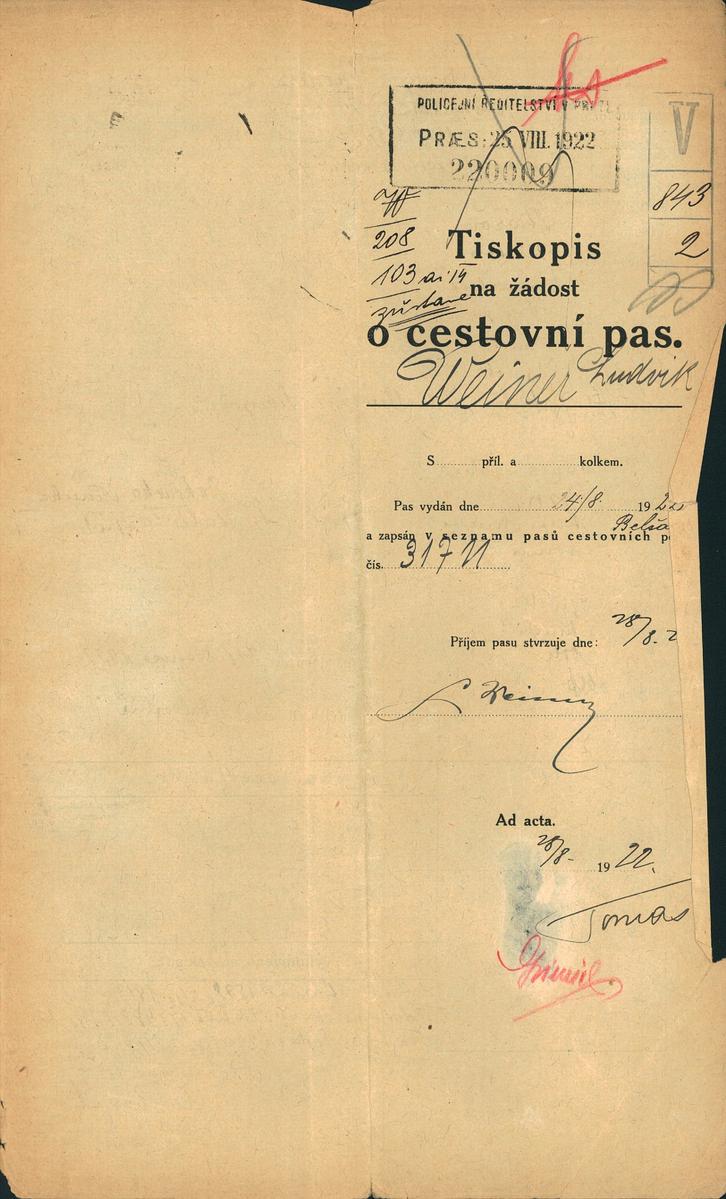 POLICEJNÍ ŘEDITELSTVÍ V PRAZE
PRÆS: 25. VIII. 1922
220009
V
843
2
208
103 ai 14
zůstane
Tiskopis
na žádost
o cestovní pas.
Weiner Ludvik
S příl. a kolkem.
Pas vydán dne 24/8 1922
a zapsán v seznamu pasů cestovních p
čís. 317
Příjem pasu stvrzuje dne: 28/8.2
L Weiner
Ad acta.
28/8- 1922.
Tomas